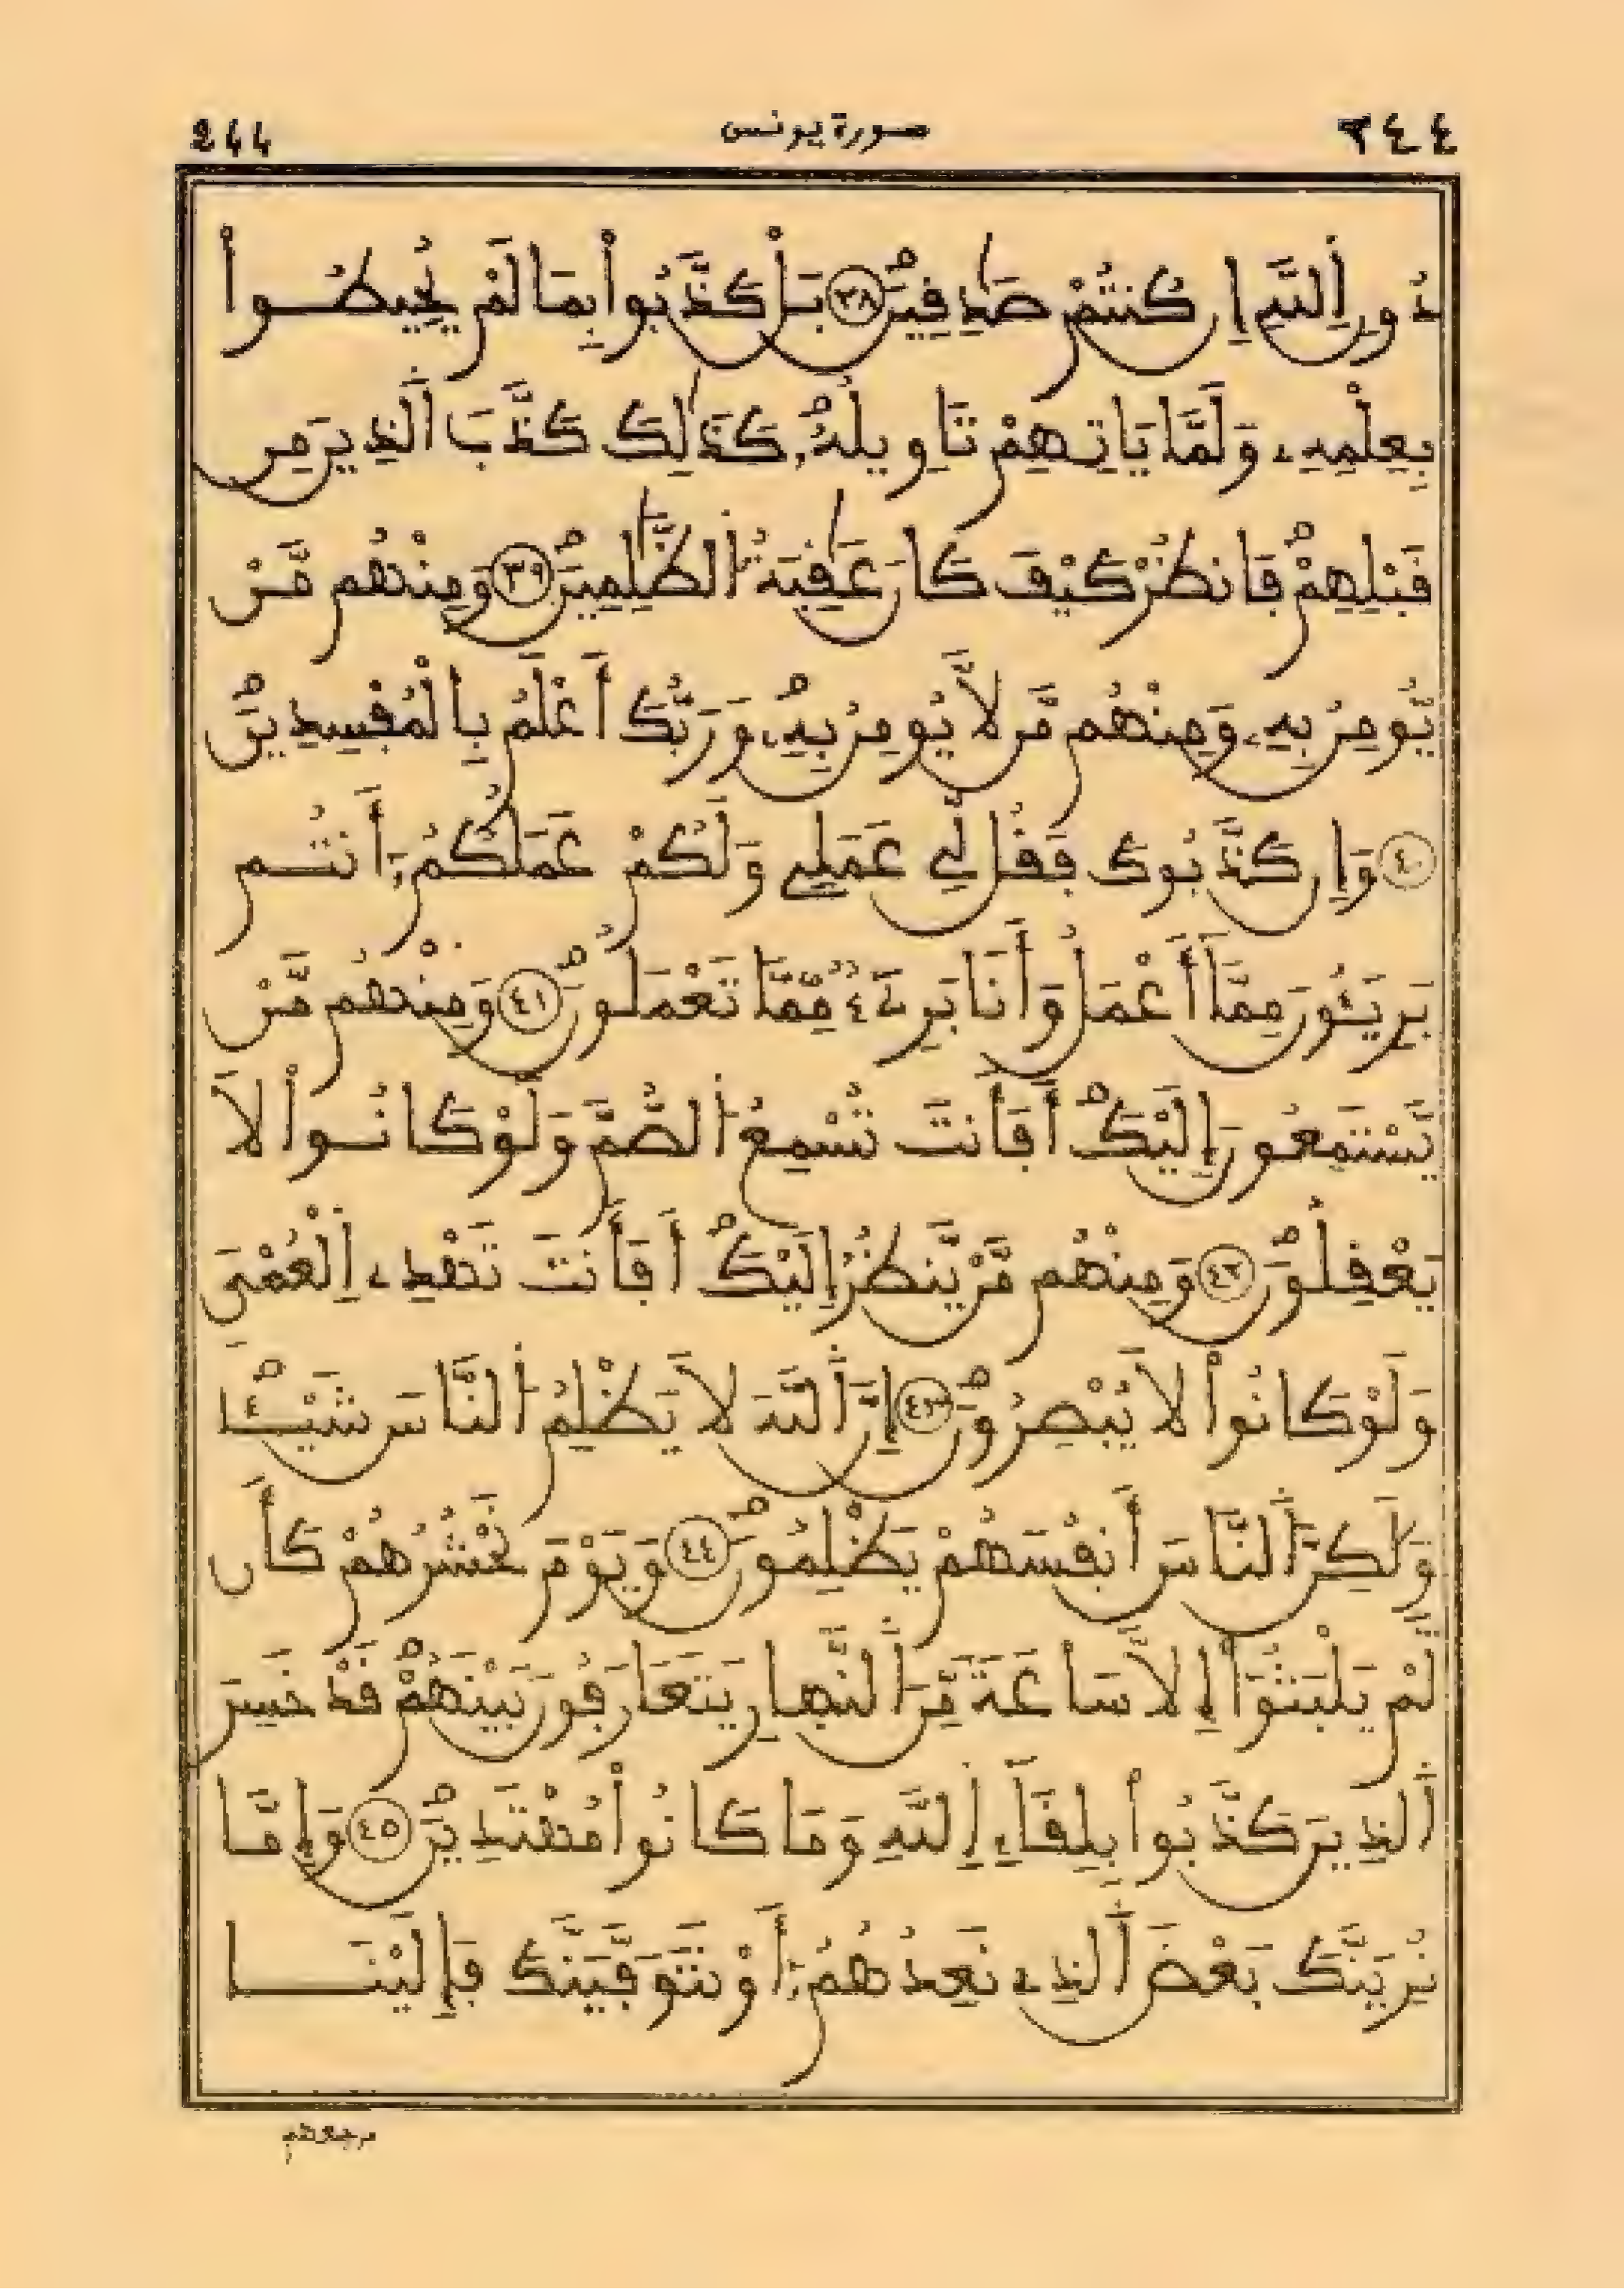 244 سورة يونس ٢٤٤
دُونِ اِ۬للَّهِ إِن كُنتُمْ صَٰدِقِينَۖ ٣٨ بَلْ كَذَّبُواْ بِمَا لَمْ يُحِيطُواْ
بِعِلْمِهِۦ وَلَمَّا يَاتِهِمْ تَاوِيلُهُۥۖ كَذَٰلِكَ كَذَّبَ اَ۬لذِينَ مِن
قَبْلِهِمْۖ فَانظُرْ كَيْفَ كَانَ عَٰقِبَةُ اُ۬لظَّٰلِمِينَۖ ٣٩ وَمِنْهُم مَّنْ
يُّومِنُ بِهِۦ وَمِنْهُم مَّن لَّا يُومِنُ بِهِۦۖ وَرَبُّكَ أَعْلَمُ بِالْمُفْسِدِينَۖ
٤٠ وَإِن كَذَّبُوكَ فَقُل لِّے عَمَلِے وَلَكُمْ عَمَلُكُمُۥٓ أَنتُم
بَرِيٓـُٔونَ مِمَّآ أَعْمَلُ وَأَنَا بَرِےٓءٞ مِّمَّا تَعْمَلُونَۖ ٤١ وَمِنْهُم مَّنْ
يَّسْتَمِعُونَ إِلَيْكَۖ أَفَأَنتَ تُسْمِعُ اُ۬لصُّمَّ وَلَوْ كَانُواْ لَا
يَعْقِلُونَۖ ٤٢ وَمِنْهُم مَّنْ يَّنظُرُ إِلَيْكَۖ أَفَأَنتَ تَهْدِے اِ۬لْعُمْيَ
وَلَوْ كَانُواْ لَا يُبْصِرُونَۖ ٤٣ إِنَّ اَ۬للَّهَ لَا يَظْلِمُ اُ۬لنَّاسَ شَيْـٔاٗۖ
وَلَٰكِنَّ اَ۬لنَّاسَ أَنفُسَهُمْ يَظْلِمُونَۖ ٤٤ وَيَوْمَ نَحْشُرُهُمْ كَأَن
لَّمْ يَلْبَثُوٓاْ إِلَّا سَاعَةٗ مِّنَ اَ۬لنَّهَارِ يَتَعَارَفُونَ بَيْنَهُمْۖ قَدْ خَسِرَ
اَ۬لذِينَ كَذَّبُواْ بِلِقَآءِ اِ۬للَّهِ وَمَا كَانُواْ مُهْتَدِينَۖ ٤٥ وَإِمَّا
نُرِيَنَّكَ بَعْضَ اَ۬لذِے نَعِدُهُمُۥٓ أَوْ نَتَوَفَّيَنَّكَ فَإِلَيْنَا
مرجعهم